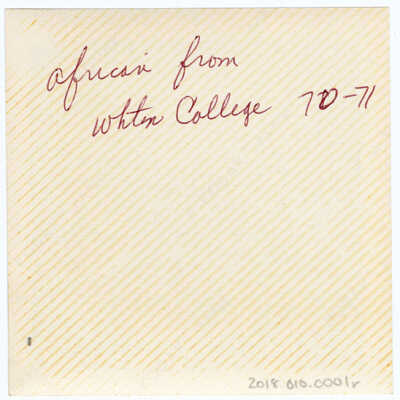 african from
Whtn College 70-71
2018.010.0001v